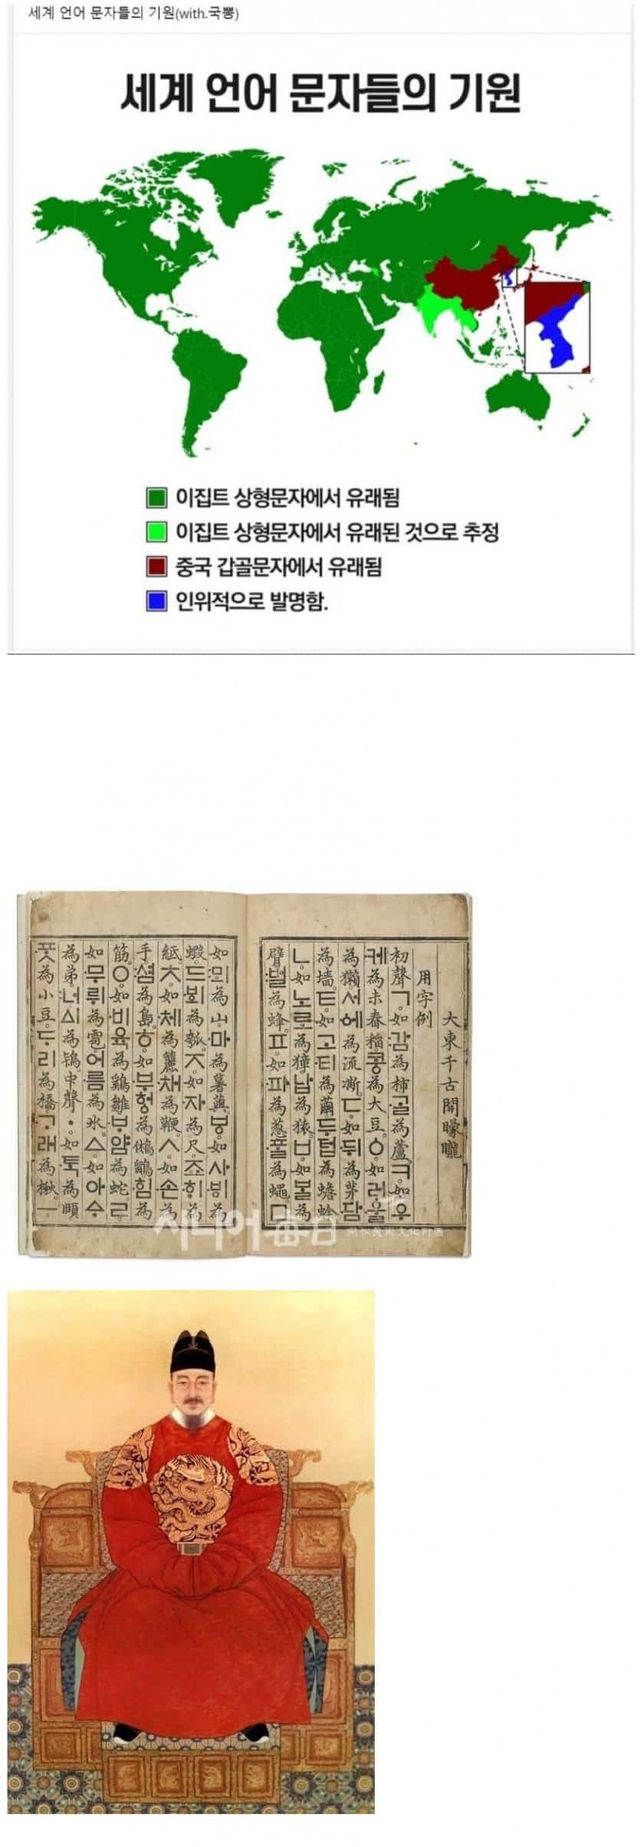 세계 언어 문자들의 기원(with.국뽕)
세계 언어 문자들의 기원
이집트 상형문자에서 유래됨
이집트 상형문자에서 유래된 것으로 추정
중국 갑골문자에서 유래됨
인위적으로 발명함.
大東千古開矇矓
用字例
初聲ㄱ如감為柿ᄀᆞᆯ為蘆ㅋ如우
케為未舂稻콩為大豆ㆁ如러울
為獺서에為流凘ㄷ如뒤為茅담
為墻ㅌ如고티為繭두텁為蟾蜍
ㄴ如노로為獐납為猿ㅂ如ᄇᆞᆯ為
臂벌為蜂ㅍ如파為葱ᄑᆞᆯ為蠅ㅁ
如뫼為山마為薯藇ㅸ如사ᄫᅵ為
蝦드ᄫᅴ為瓠ㅈ如자為尺죠ᄒᆡ為
紙ㅊ如체為籭채為鞭ㅅ如손為
手셤為島ㅎ如부헝為鵂鶹힘為
筋ㅇ如비육為鷄雛ᄇᆞ얌為蛇ㄹ
如무뤼為雹어름為氷ㅿ如아ᅀᆞ
為弟너ᅀᅵ為鴇中聲ㆍ如ᄐᆞᆨ為頤
ᄑᆞᆺ為小豆ᄃᆞ리為橋ᄀᆞ래為楸ㅡ
시니어每日